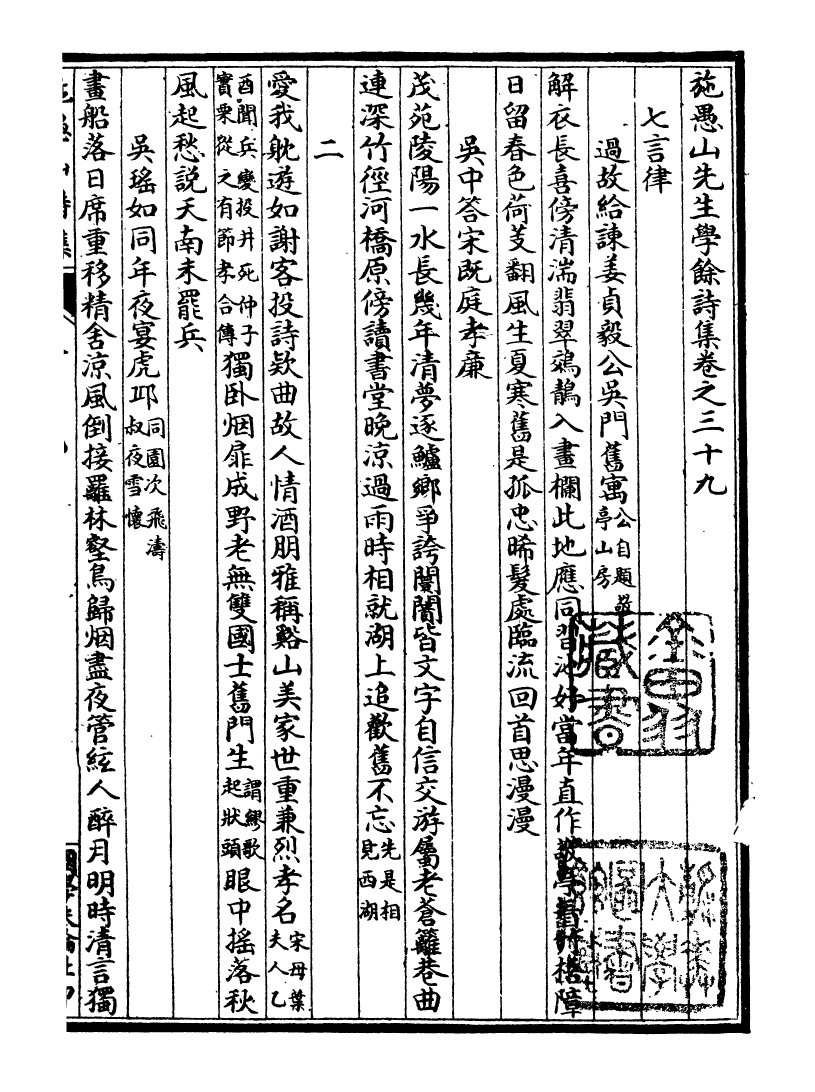 施愚山先生學餘詩集卷之三十九
七言律
過故給諫姜貞毅公吳門舊寓公自題敬亭山房
解衣長喜傍清湍翡翠鵁鶄入畫欄此地應同習池好當年直作
日留春色荷芰翻風生夏寒舊是孤忠晞髮處臨流回首思漫漫
吳中答宋旣庭孝廉
茂苑陵陽一水長幾年清夢逐鱸鄉爭誇闤闠皆文字自信交游屬老蒼籬巷曲
連深竹徑河橋原傍讀書堂晚涼過雨時相就湖上追歡舊不忘先是相見西湖
二
愛我躭遊如謝客投詩欵曲故人情酒朋雅稱谿山美家世重兼烈孝名宋母葉夫人乙
酉聞兵變投井死仲子實栗從之有節孝合傳獨卧烟扉成野老無雙國士舊門生謂繆歌起狀頭眼中搖落秋
風起愁説天南未罷兵
吳瑤如同年夜宴虎丘同園次飛濤叔夜雪懷
畫船落日席重移精舍涼風倒接羅林壑鳥歸烟盡夜管絃人醉月明時清言獨